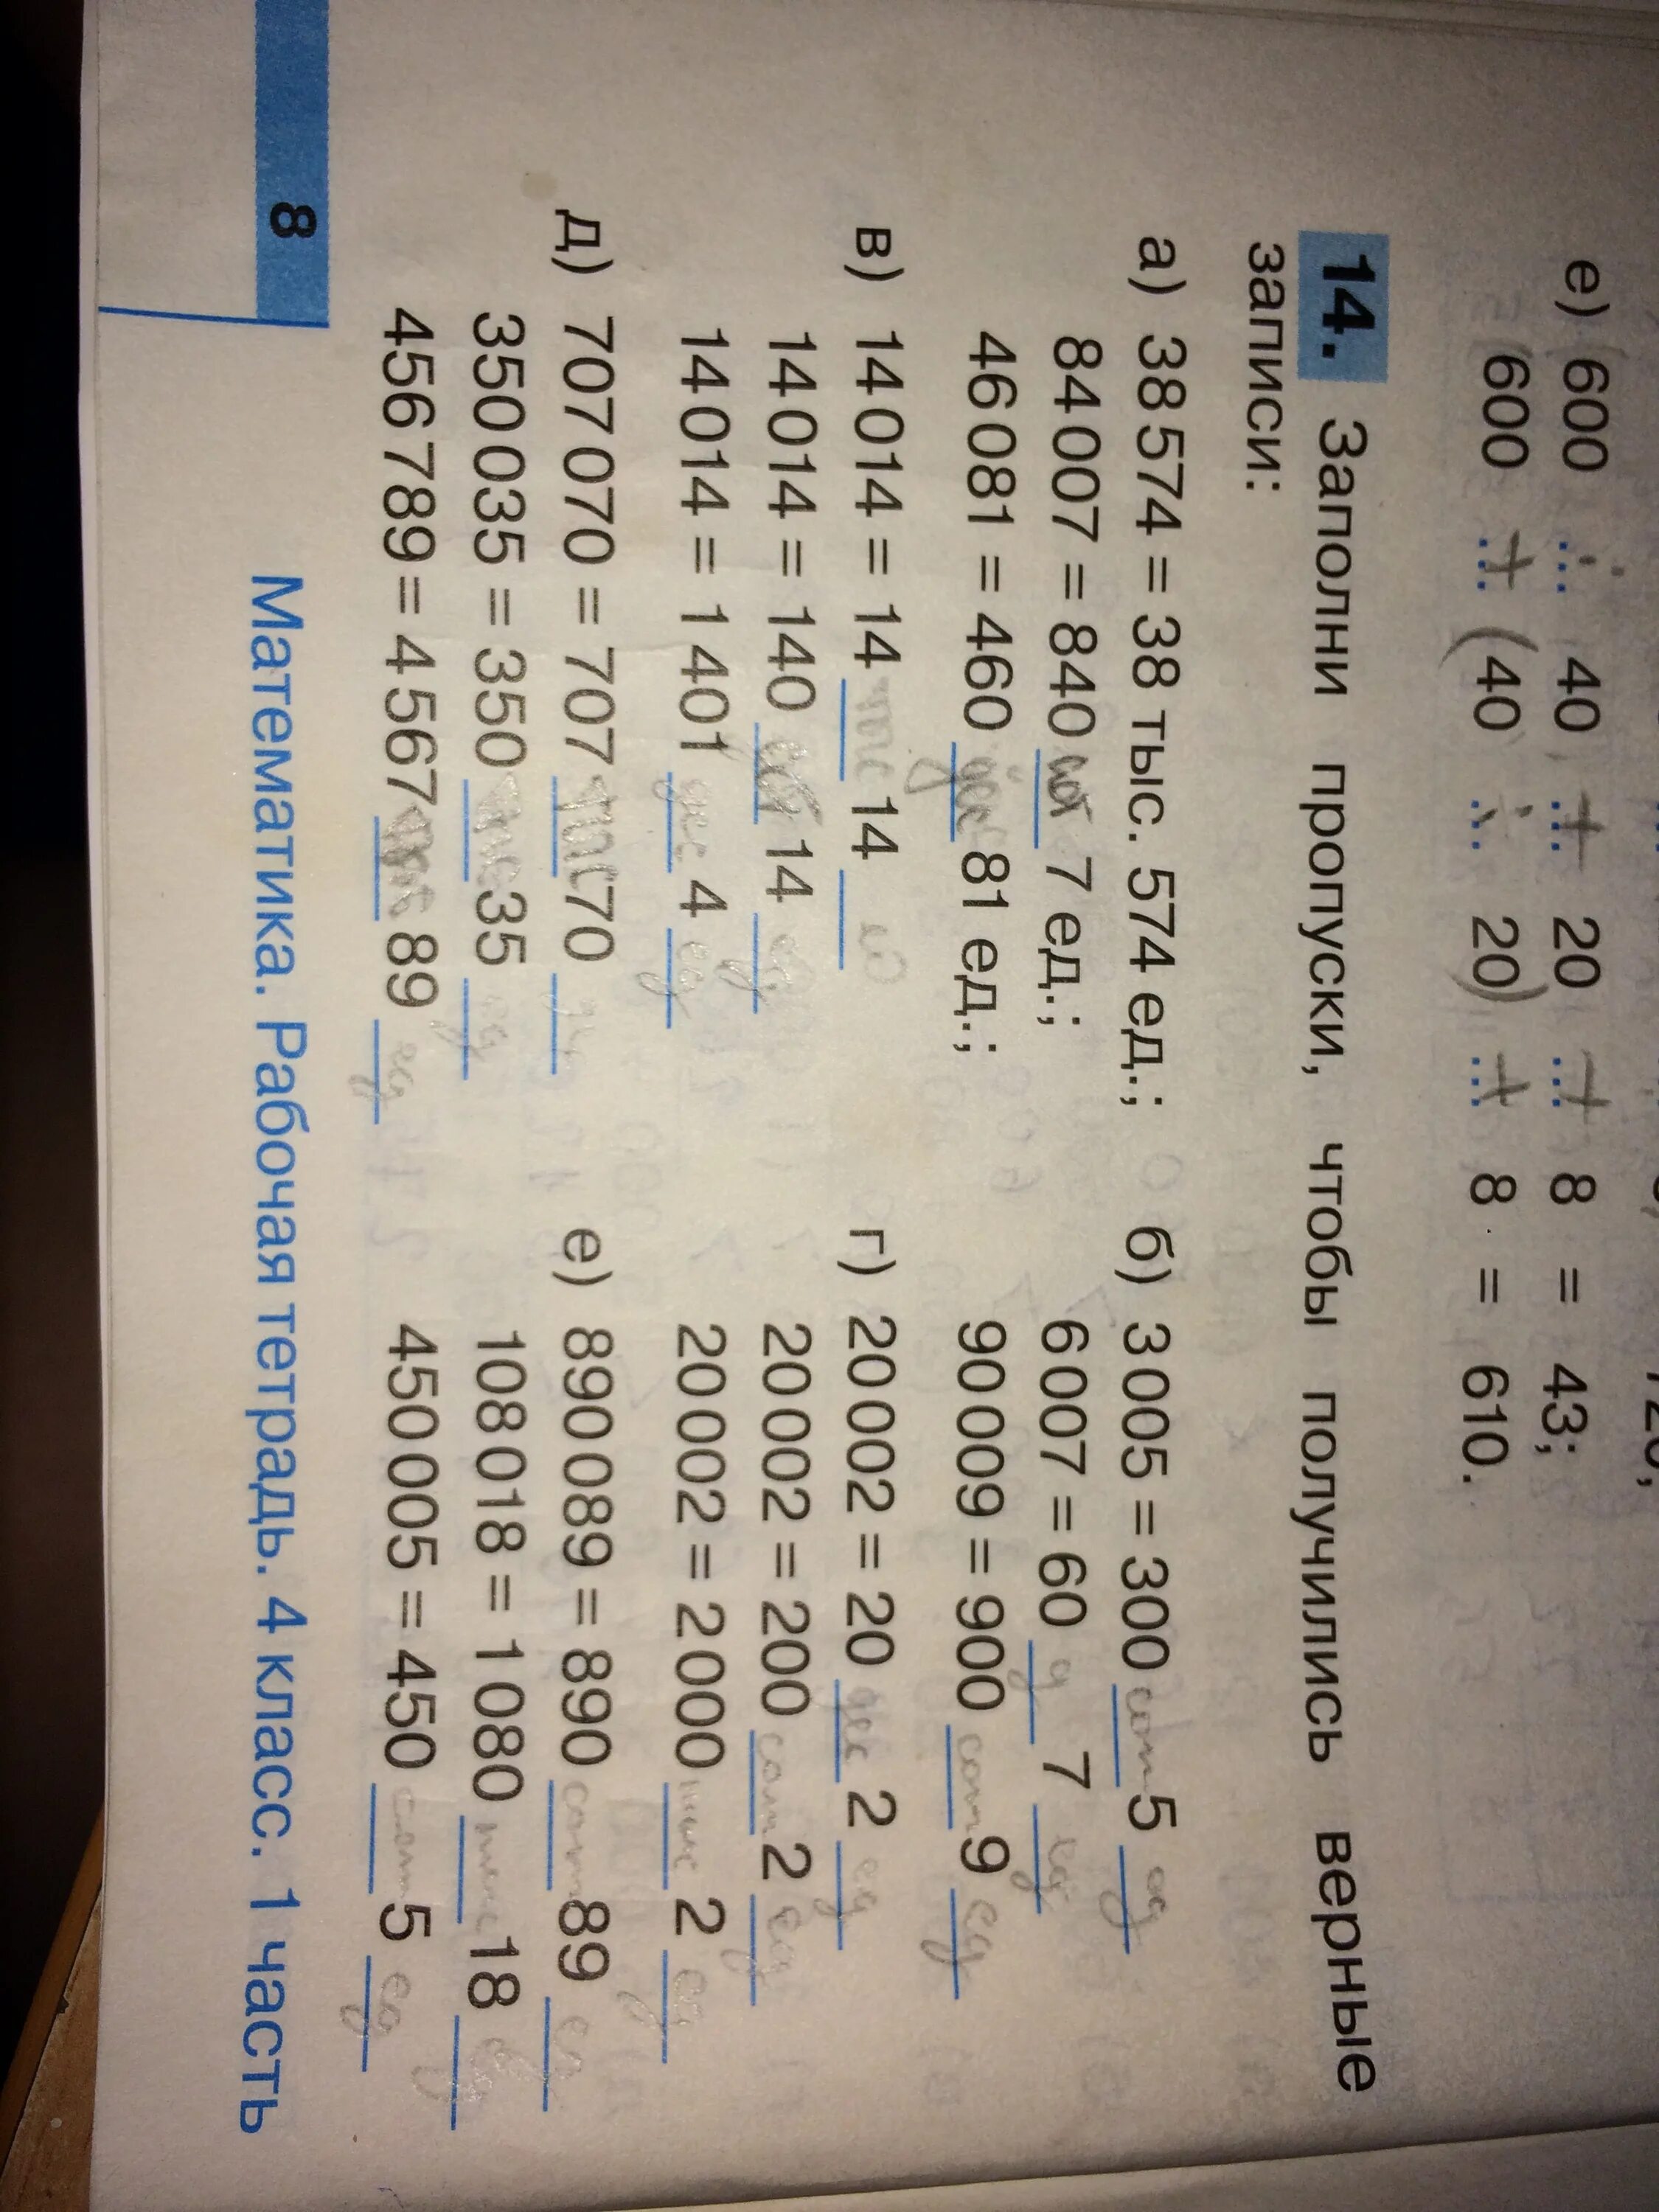 е) 600 : 40 + 20 + 8 = 43;
600 + (40 : 20) + 8 = 610.
14. Заполни пропуски, чтобы получились верные
записи:
а) 38 574 = 38 тыс. 574 ед.;
84 007 = 840 сот 7 ед.;
46 081 = 460 81 ед.;
б) 3 005 = 300 5
6 007 = 60 7 ед
90 009 = 900 сот 9 ед
в) 14 014 = 14 тыс 14
14 014 = 140 сот 14 ед
14 014 = 1 401 дес 4 ед
г) 20 002 = 20 2 ед
20 002 = 200 сот 2 ед
20 002 = 2 000 2 ед
д) 707 070 = 707 тыс 70
350 035 = 350 тыс 35 ед
456 789 = 4 567 89 ед
е) 890 089 = 890 сот 89 ед
108 018 = 1 080 18 ед
450 005 = 450 сот 5 ед
8
Математика. Рабочая тетрадь. 4 класс. 1 часть